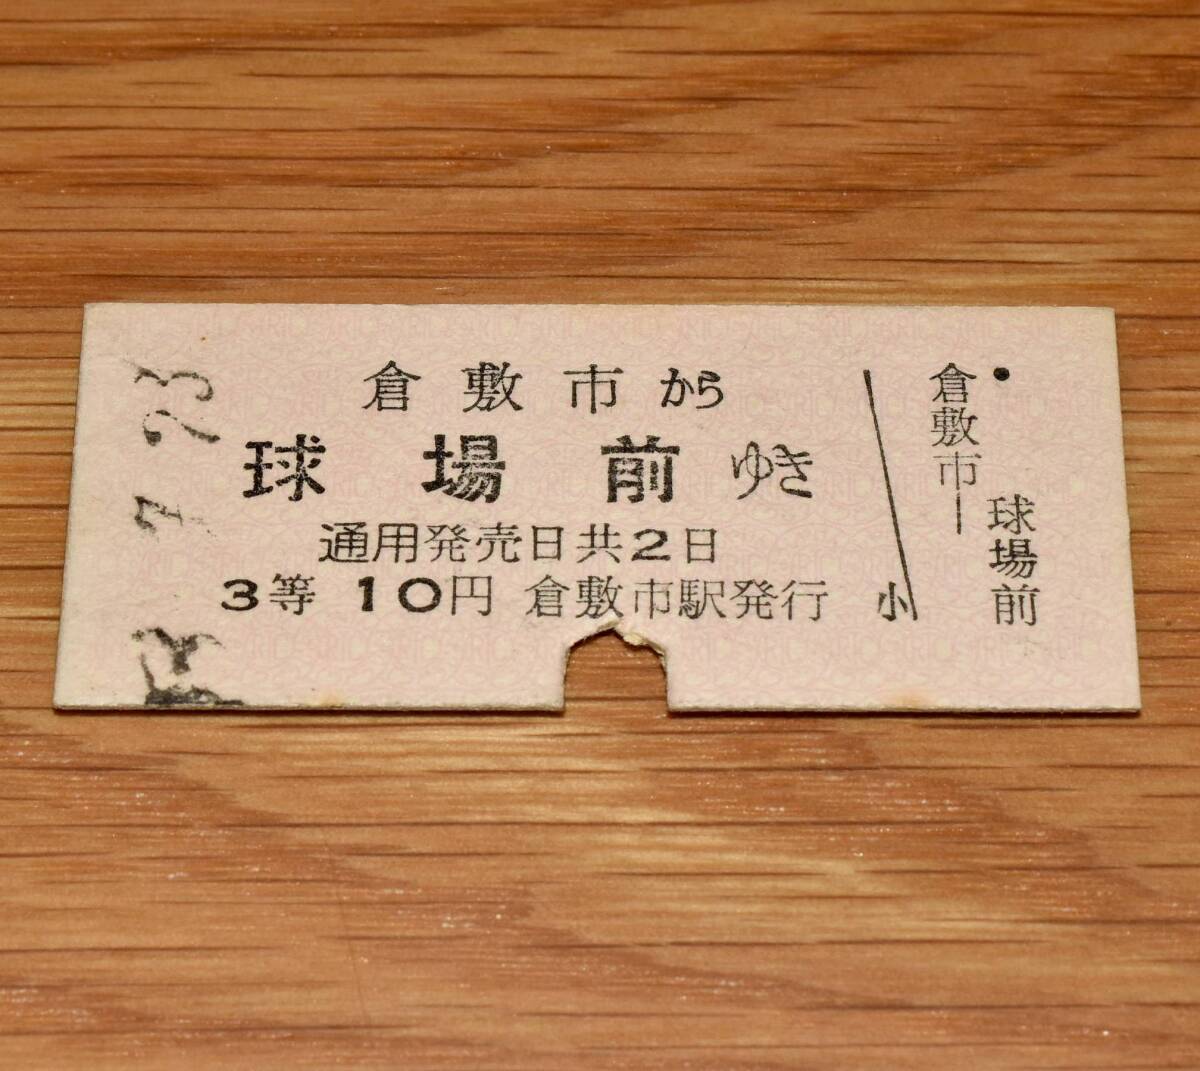 倉敷市から
球場前ゆき
通用発売日共2日
3等 10円 倉敷市駅発行
小
倉敷市―
球場前